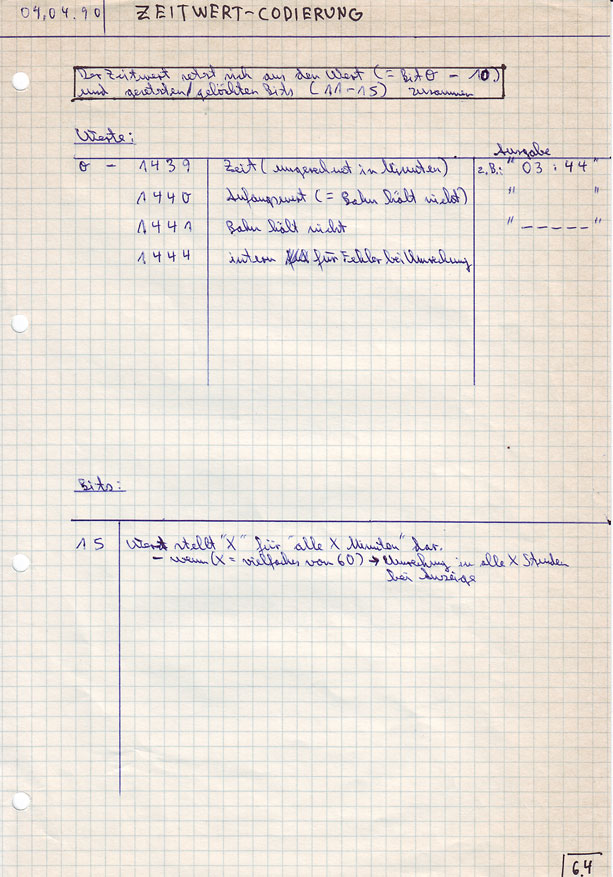 04.04.90 ZEITWERT-CODIERUNG
Der Zeitwert setzt sich aus den Wert (= Bit 0 - 10)
und gesetzten/gelöschten Bits (11-15) zusammen
Werte:
Ausgabe
0 - 1439 Zeit (umgerechnet in Minuten) z.B.: " 03 : 44 "
1440 Anfangswert (= Bahn hält nicht) " "
1441 Bahn hält nicht " ----- "
1444 intern für Fehler bei Umrechung
Bits:
15 Wert stellt "X" für "alle X Minuten" dar.
- wenn (X = vielfaches von 60) → Umrechung in alle X Stunden
bei Anzeige
6.4